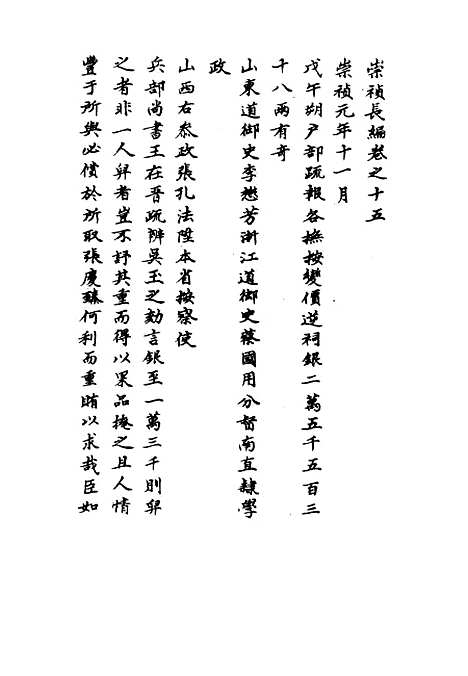 崇禎長編卷之十五
崇禎元年十一月
戊午朔戶部疏報各撫按變價逆祠銀二萬五千五百三
十八兩有奇
山東道御史李懋芳浙江道御史蔡國用分督南直隸學
政
山西右叅政張孔法陞本省按察使
兵部尚書王在晉疏辨吳玉之劾言銀至一萬三千則舁
之者非一人舁者豈不訝其重而得以果品掩之且人情
豐于所與必償於所取張慶臻何利而重賄以求哉臣如